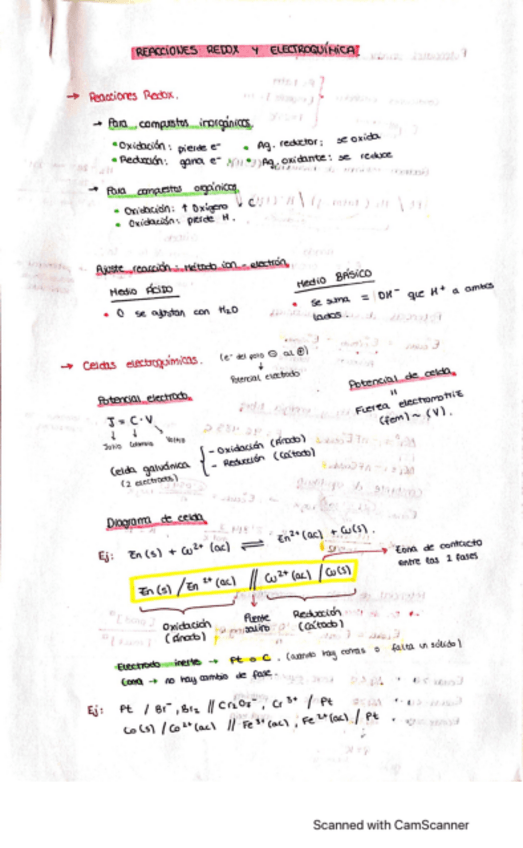 REACCIONES REDOX Y ELECTROQUÍMICA.
→ Reacciones Redox.
→ Para compuestos inorgánicos.
• Oxidación: pierde e⁻ • Ag. reductor: se oxida
• Reducción: gana e⁻ • Ag. oxidante: se reduce
→ Para compuestos orgánicos.
• Oxidación: ↑ Oxígeno ↓ C
• Oxidación: pierde H.
Ajuste reacción: Método ion-electrón
Medio ÁCIDO
• O se ajustan con H₂O
Medio BÁSICO
• Se suma = OH⁻ que H⁺ a ambos
lados.
→ Celdas electroquímicas. (e⁻ del polo ⊖ al ⊕)
↓
Potencial electrodo
Potencial electrodo.
J = C · V
↓ ↓ ↘
Julio Culombio Voltio
Celda galvánica
(2 electrodos)
- Oxidación (Ánodo)
- Reducción (Cátodo)
Potencial de celda.
=
Fuerza electromotriz
(fem) ~ (V).
Diagrama de celda
Ej: Zn (s) + Cu²⁺ (ac) ⇌ Zn²⁺ (ac) + Cu(s).
Zn (s) / Zn²⁺ (ac) // Cu²⁺ (ac) / Cu(s)
→ Zona de contacto
entre las 2 fases
Oxidación
(ánodo)
Puente
salino
Reducción
(Cátodo)
Electrodo inerte → Pt o C. (cuando hay comas o falta un sólido)
Coma → no hay cambio de fase.
Ej: Pt / Br⁻, Br₂ // Cr₂O₇²⁻, Cr³⁺ / Pt
Co (s) / Co²⁺ (ac) // Fe³⁺ (ac), Fe²⁺ (ac) / Pt
Scanned with CamScanner